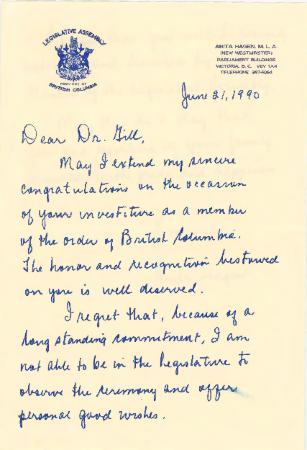 LEGISLATIVE ASSEMBLY
PROVINCE OF
BRITISH COLUMBIA
ANITA HAGEN, M.L.A.
(NEW WESTMINSTER)
PARLIAMENT BUILDINGS
VICTORIA, B.C. V8V 1X4
TELEPHONE
June 21, 1990
Dear Dr. Gill,
May I extend my sincere
congratulations on the occasion
of your investiture as a member
of the order of British Columbia.
The honor and recognition bestowed
on you is well deserved.
I regret that, because of a
long standing commitment, I am
not able to be in the Legislature to
observe the ceremony and offer
personal good wishes.